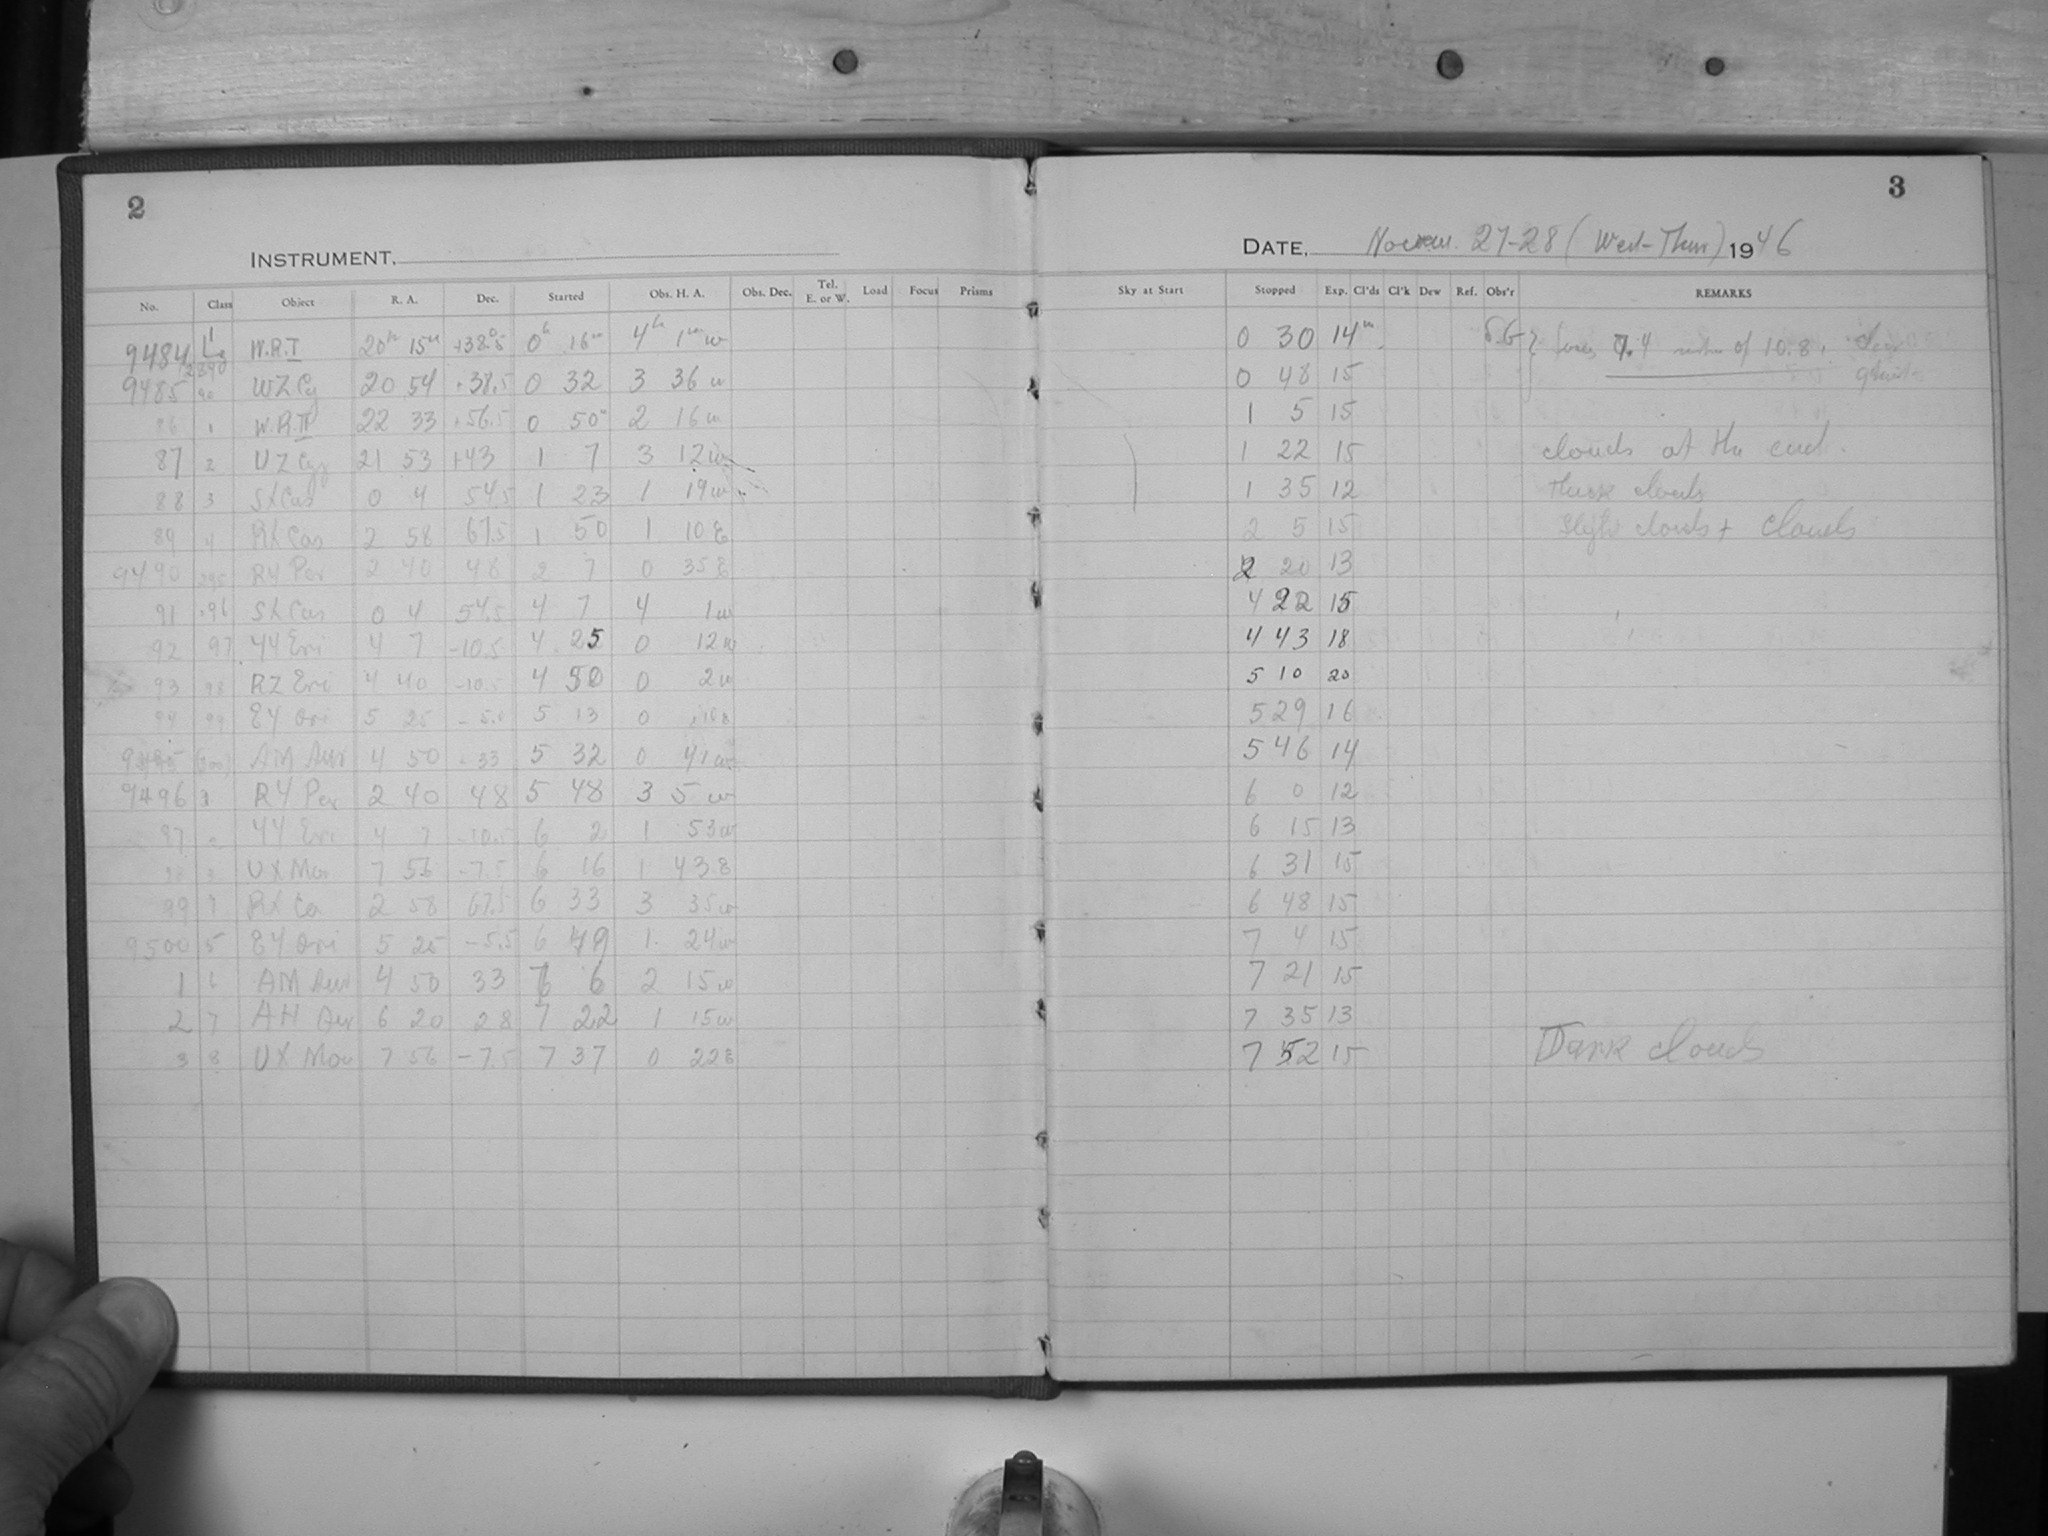 2
3
INSTRUMENT,
DATE, 27-28 (Wed-Thur) 1946
No. Class Object R. A. Dec. Started Obs. H. A. Obs. Dec. Tel. E. or W. Load Focus Prisms Sky at Start Stopped Exp. Cl'ds Cl'k Dew Ref. Obs'r REMARKS
9484 W.R.I 20h 15m +38.5 0h 16m 4h 1m w 0 30 14m S.G
9485 90 WZ Cyg 20 54 +38.5 0 32 3 36 w 0 48 15
86 1 W.R.II 22 33 +56.5 0 50 2 16 w 1 5 15
87 2 UZ Cyg 21 53 +43 1 7 3 12 w 1 22 15 clouds at the end.
88 3 SX Cas 0 4 54.5 1 23 1 19 w 1 35 12 Thick clouds
89 4 RX Cas 2 58 67.5 1 50 1 10 E 2 5 15 clouds + clouds
9490 RY Per 2 40 48 2 7 0 35 E 2 20 13
91 96 SX Cas 0 4 54.5 4 7 4 1 w 4 22 15
92 97 YY Eri 4 7 -10.5 4 25 0 12 w 4 43 18
93 98 RZ Eri 4 40 -10.5 4 50 0 2 w 5 10 20
94 99 EY Ori 5 25 5 13 0 10 E 5 29 16
AM Aur 4 50 33 5 32 0 41 w 5 46 14
9496 1 RY Per 2 40 48 5 48 3 5 w 6 0 12
97 2 YY Eri 4 7 -10.5 6 2 1 53 w 6 15 13
98 3 UX Mon 7 56 -7.5 6 16 1 43 E 6 31 15
99 RX Ca 2 58 67.5 6 33 3 35 w 6 48 15
9500 5 EY Ori 5 25 -5.5 6 49 1 24 w 7 4 15
1 6 AM Aur 4 50 33 7 6 2 15 w 7 21 15
2 7 AH Aur 6 20 28 7 22 1 15 w 7 35 13
3 8 UX Mon 7 56 -7.5 7 37 0 22 E 7 52 15 Dark clouds